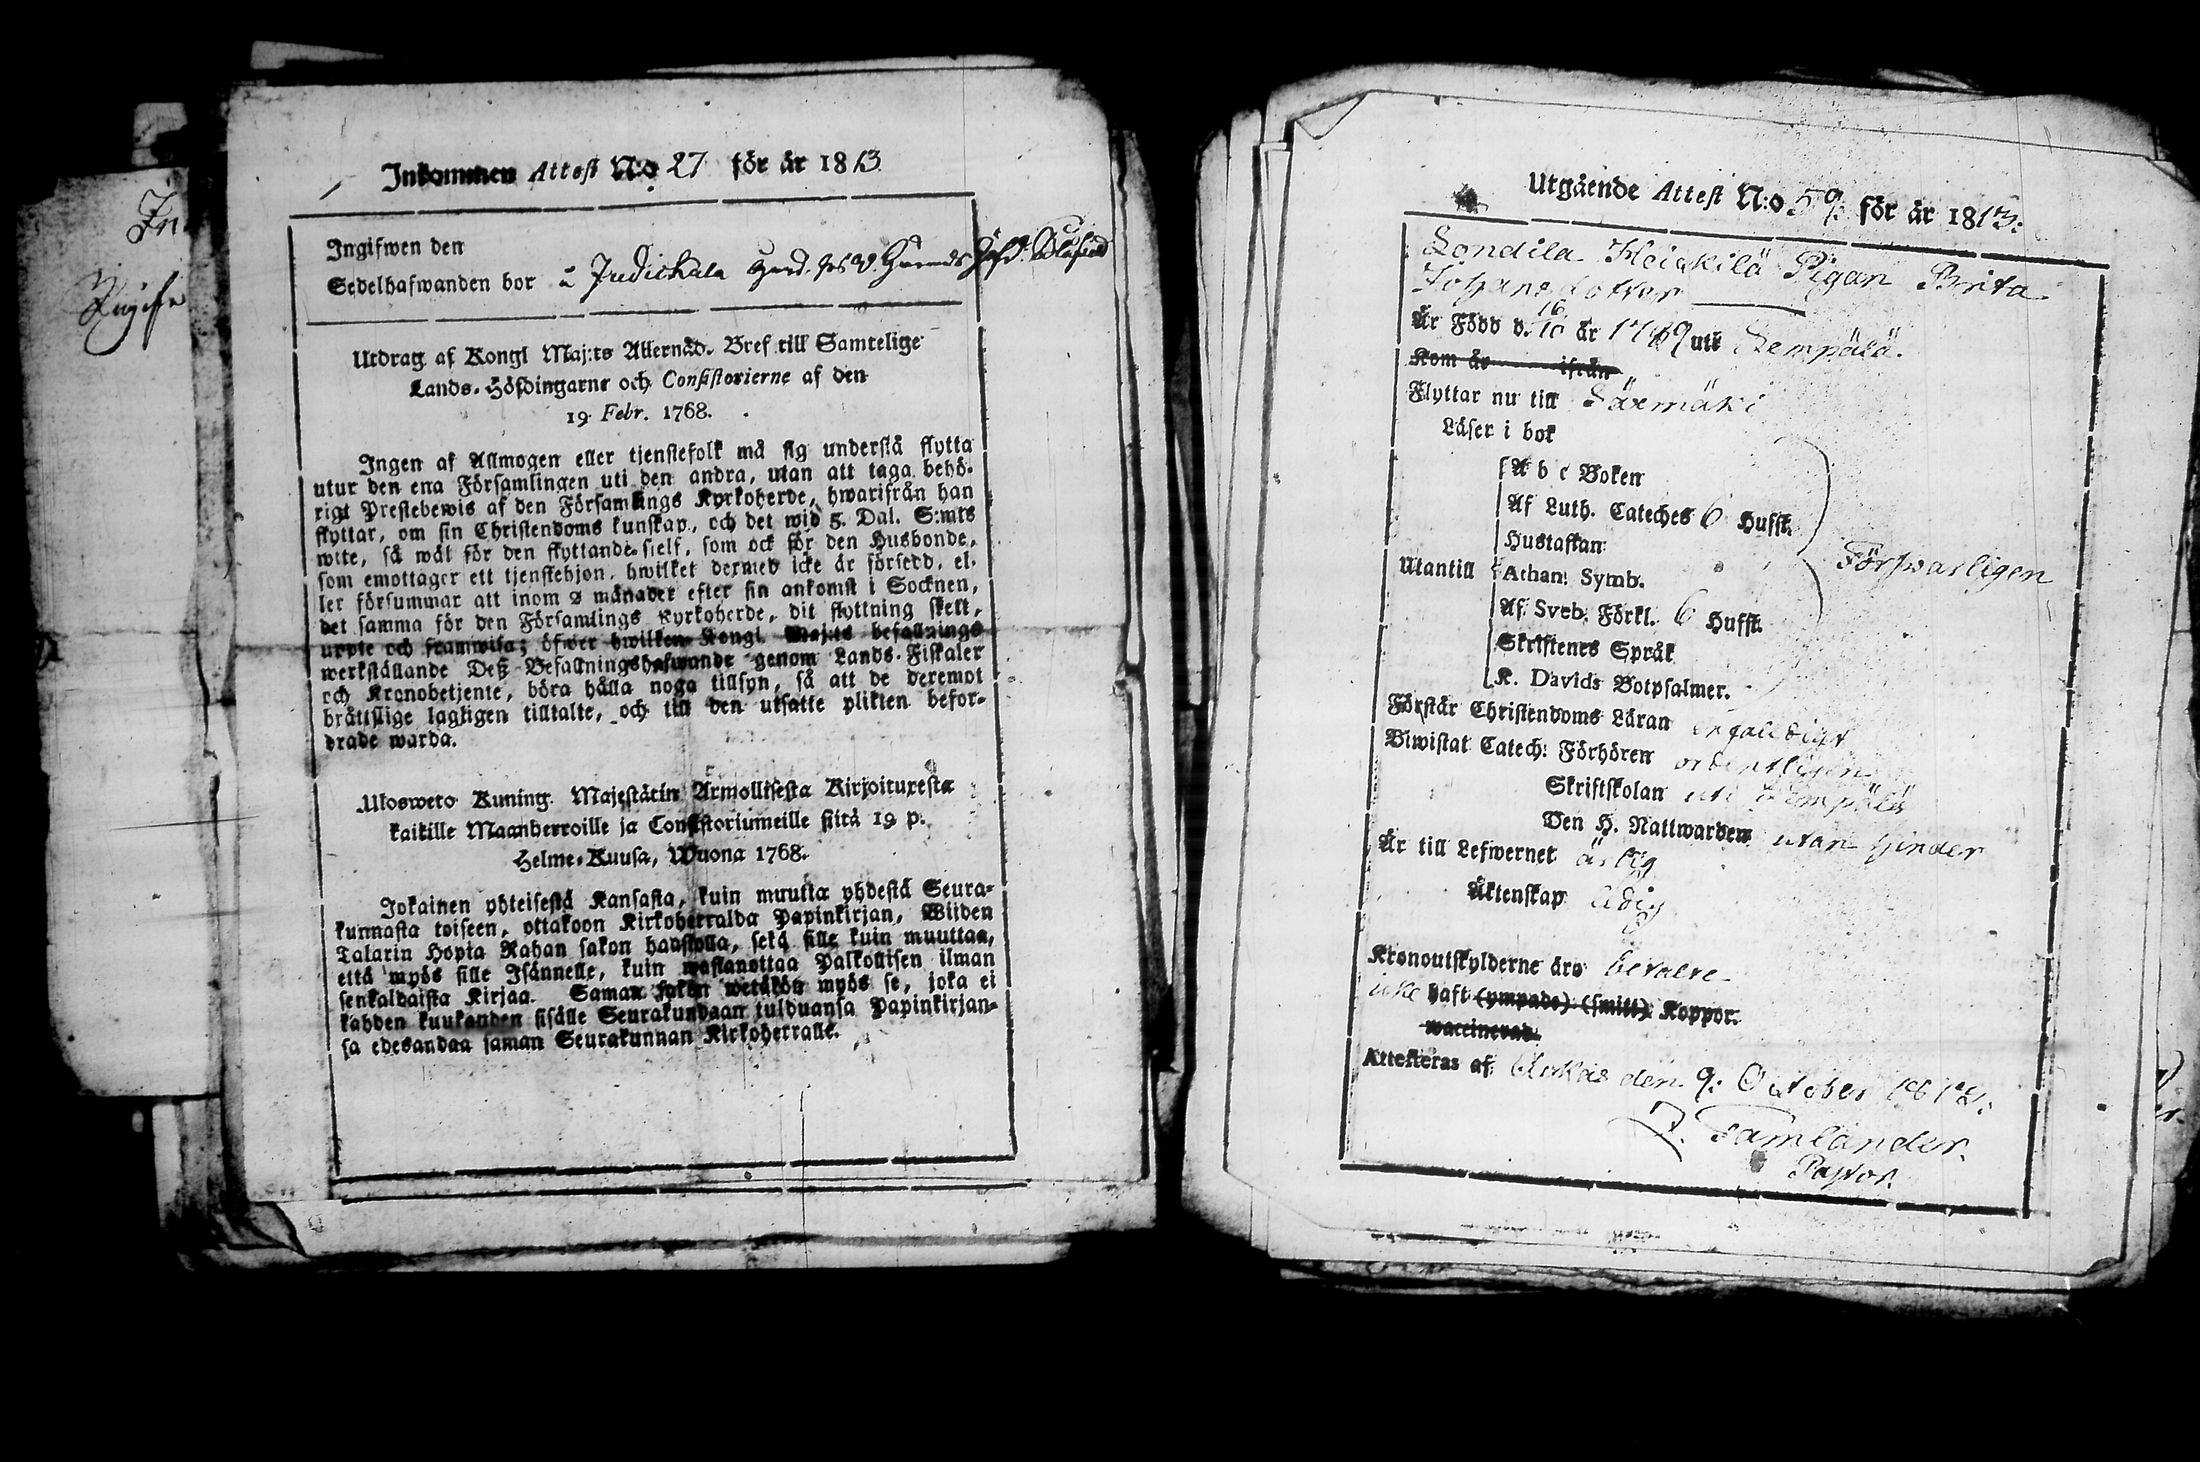 In
Ingifw
Inkommen Attest N:o 27 för år 1813
Ingifwen den
Sedelhafwanden bor i Judickala
Utdrag af Kongl Maj:ts Allernåd. Bref till Samtelige
Lands-Höfdingarne och Consistorierne af den
19 Febr. 1768.
Ingen af Allmogen eller tjenstefolk må sig understå flytta
utur den ena Församlingen uti den andra, utan att taga behö-
rigt Prestebewis af den Församlings Kyrkoherde, hwarifrån han
flyttar, om sin Christendoms kunskap, och det wid 5. Dal. S:mts
wite, så wäl för den flyttande sielf, som ock för den Husbonde,
som emottager ett tjenstehjon, hwilket dermed icke är försedd, el-
ler försummar att inom 2 månader efter sin ankomst i Socknen,
det samma för den Församlings Kyrkoherde, dit flyttning skett,
uppte och framwisa; öfwer hwilken Kongl. Maj:ts befallnings
werkställande Deß Befallningshafwande genom Lands-Fiskaler
och Kronobetjente, böra hålla noga tillsyn, så att de deremot
bråttslige lagligen tilltalte, och till den utsatte plikten befor-
drade warda.
Ulosweto Kuning. Majestätin Armollisesta Kirjoituxesta
kaikille Maanherroille ja Consistoriumeille siitä 19 p.
Helme-Kuusa, Wuona 1768.
Jokainen yhteisestä Kansasta, kuin muutta yhdestä Seura-
kunnasta toiseen, ottakoon Kirkoherralda Papinkirjan, Wiiden
Talarin Hopia Rahan sakon haastolla, sekä sille kuin muuttaa,
että myös sille Isännelle, kuin wastanottaa Palkollisen ilman
senkaldaista Kirjaa. Saman sakon wetäkön myös se, joka ei
kahden kuukauden sisälle Seurakundaan tulduansa Papinkirjan-
sa edesandaa saman Seurakunnan Kirkoherralle.
Utgående Attest N:o 59 för år 1813:
Londila Heickilä Pigan Brita
Johansdotter
16
Är Född d. 10 år 1789 uti Lempälä.
Kom år ifrån
Flyttar nu till Säxmäki
Läser i bok
Utantill
A b c Boken
Af Luth. Cateches 6 Hufst.
Hustaflan
Athan: Symb.
Af Sveb. Förkl. 6 Hufst.
Skriftenes Språk
K. Davids Botpsalmer.
Förswarligen
Förstår Christendoms Läran enfaldigt
Biwistat Catech: Förhören ordentligen
Skriftskolan uti Lempälä
Den H. Nattwarden utan hinder
Är till Lefwernet ärlig
Äktenskap ledig
Kronoutskylderne äro betalte
icke haft (ympade) (smitt) Koppor.
waccinerad.
Attesteras af Kuckas den 9: October 1813:
J. Tamlander.
Pastor.